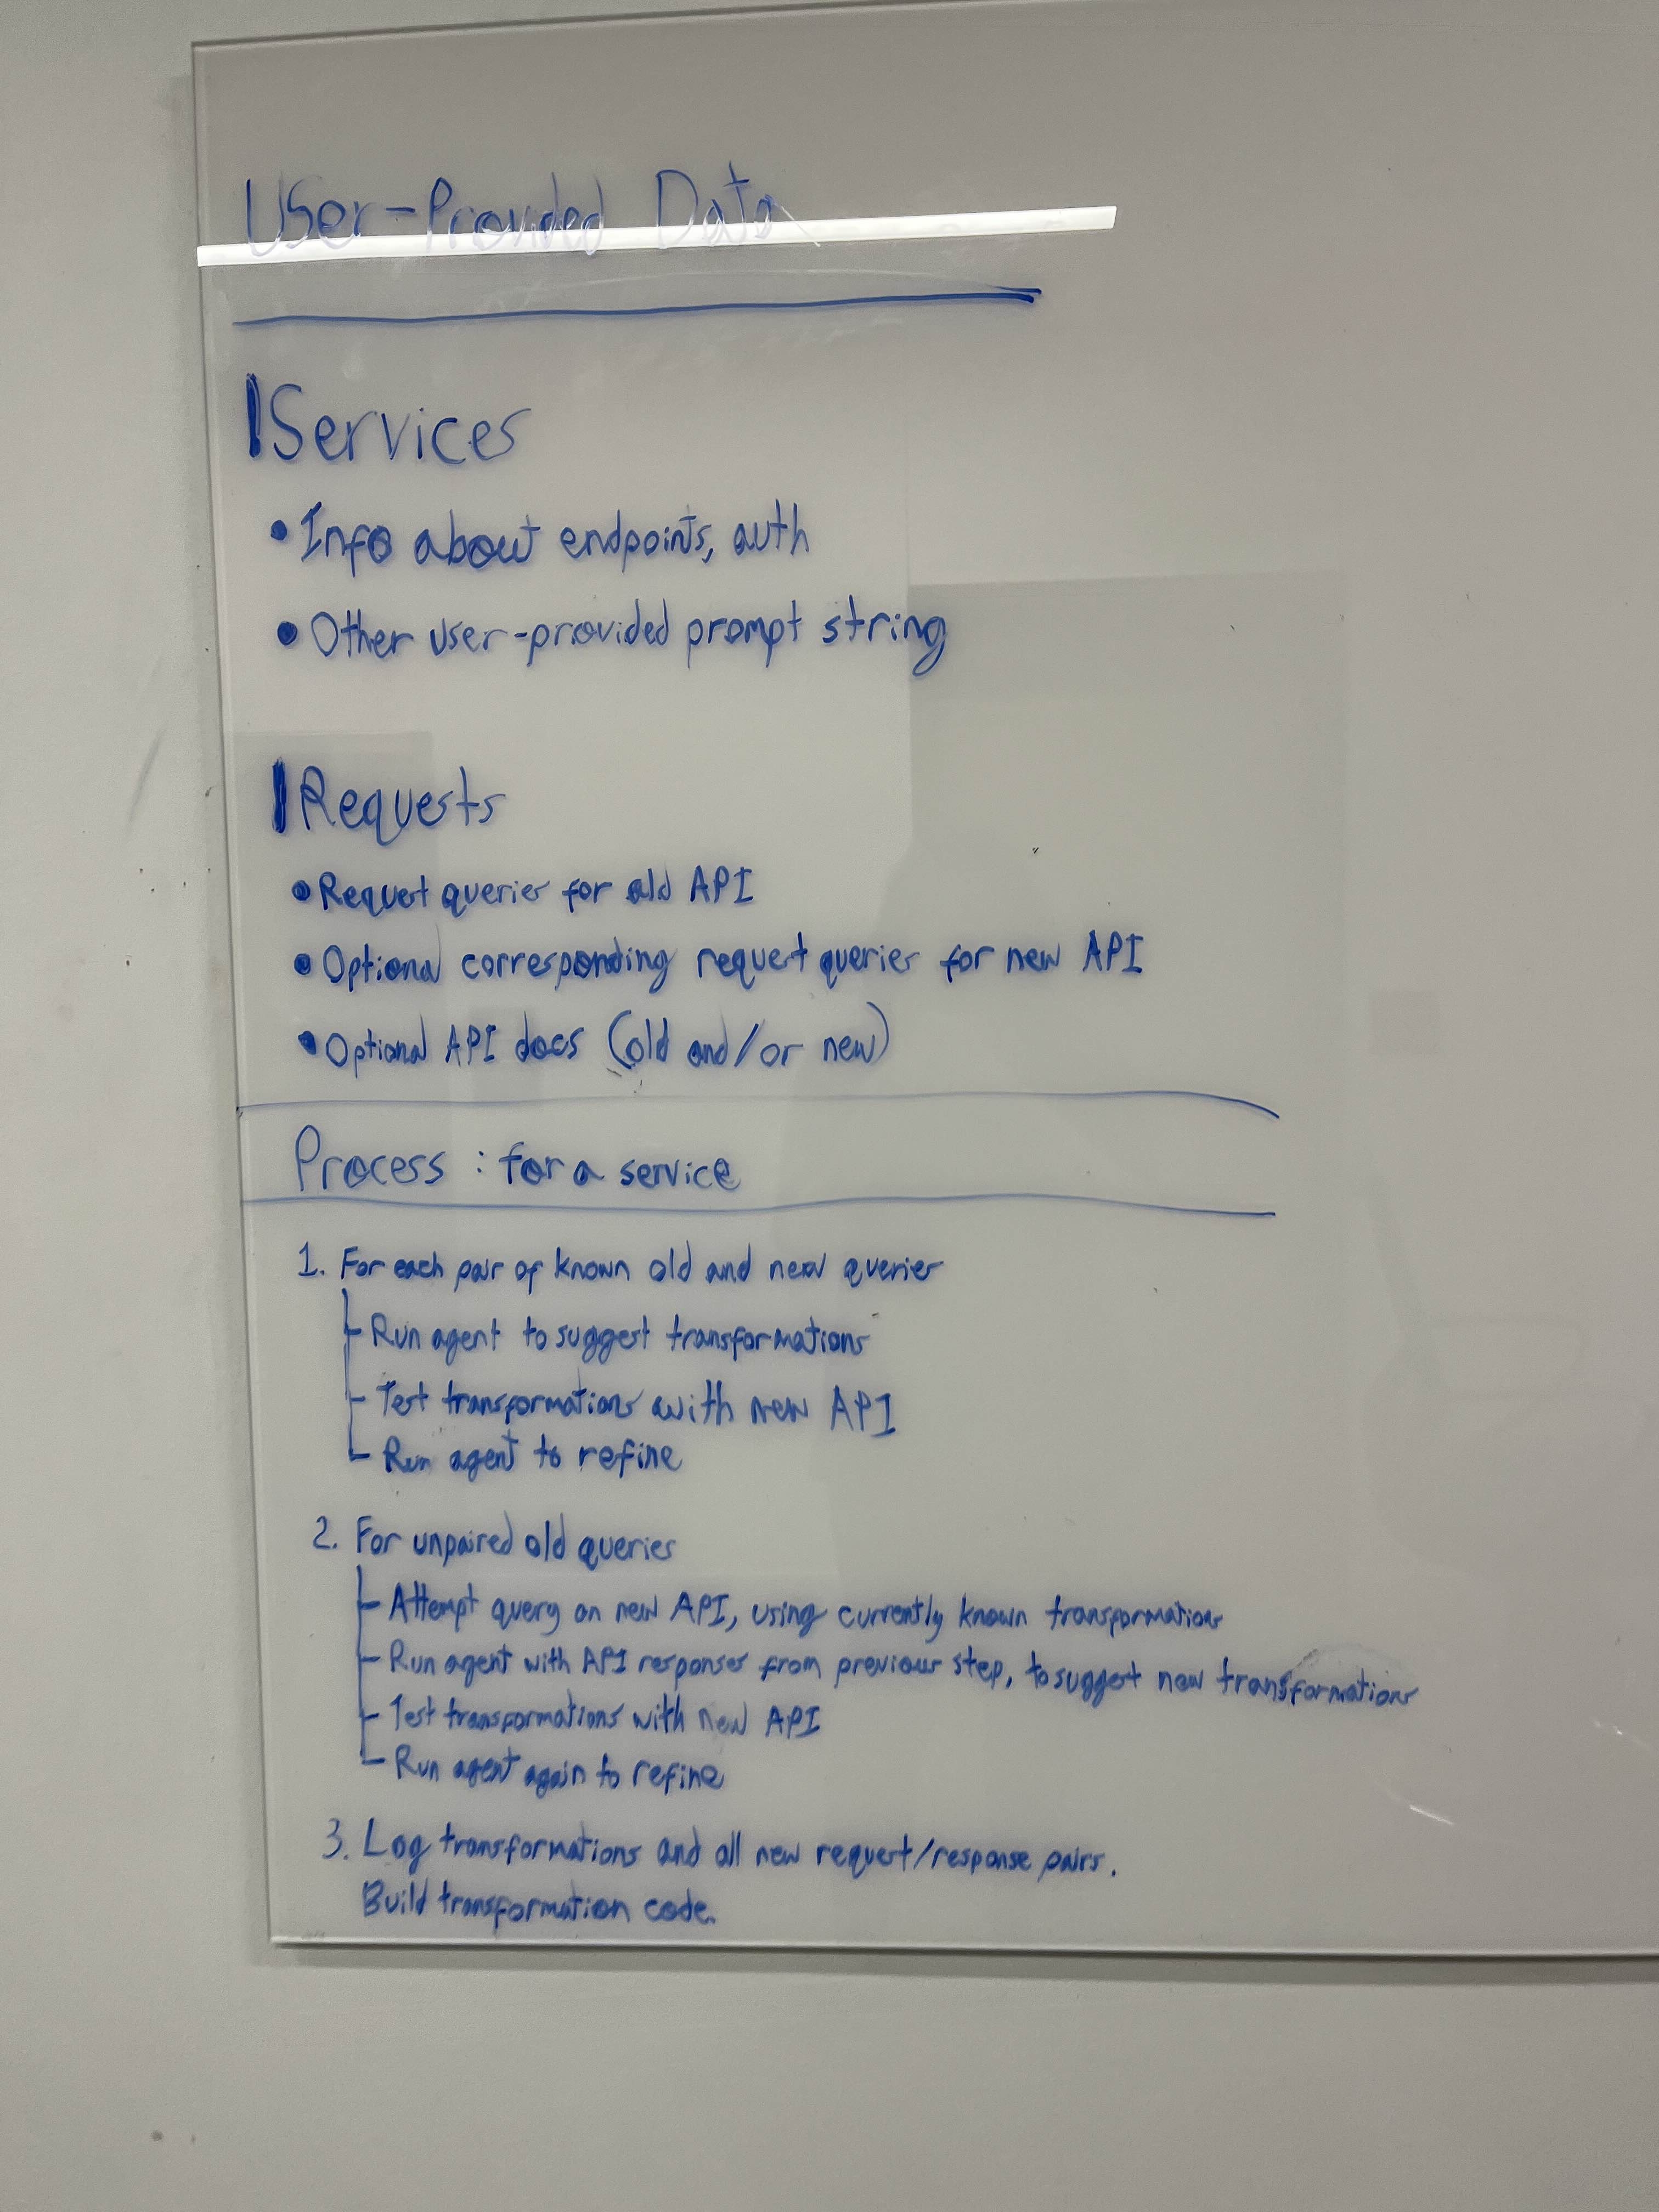 User-Provided Data
Services
• Info about endpoints, auth
• Other user-provided prompt string
Requests
• Request queries for old API
• Optional corresponding request queries for new API
• Optional API docs (old and/or new)
Process : for a service
1. For each pair of known old and new queries
Run agent to suggest transformations
Test transformations with new API
Run agent to refine
2. For unpaired old queries
Attempt query on new API, using currently known transformations
Run agent with API responses from previous step, to suggest new transformations
Test transformations with new API
Run agent again to refine
3. Log transformations and all new request/response pairs.
Build transformation code.